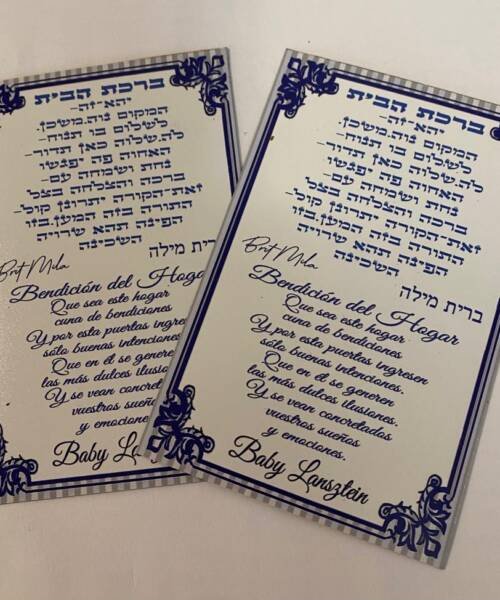 ברכת הבית
יהא-זה-
המקום נוה.משכן.
לשלום בו תנוח-
לה.שלוה כאן תדור-
האחוה פה יפגשו
נחת ושמחה עם-
ברכה והצלחה בצל
זאת-הקורה יתרונן קול-
התורה בזה המען.בזו
הפינה תהא שרויה
השכינה
ברית מילה
Brit Mila
Bendición del Hoga
Que sea este hogar
cuna de bendiciones
Y por esta puertas ingres
sólo buenas intenciones
Que en él se generen
las más dulces ilusiones
Y se vean concreta
vuestros sueñ
y emocione
Baby La
ברכת הבית
יהא-זה-
המקום נוה.משכן.
לשלום בו תנוח-
לה.שלוה כאן תדור-
האחוה פה יפגשו
נחת ושמחה עם-
ברכה והצלחה בצל
זאת-הקורה יתרונן קול-
התורה בזה המען.בזו
הפינה תהא שרויה
השכינה
ברית מילה
Brit Mila
Bendición del Hogar
Que sea este hogar
cuna de bendiciones
Y por esta puertas ingresen
sólo buenas intenciones.
Que en él se generen
las más dulces ilusiones.
Y se vean concretados
vuestros sueños
y emociones.
Baby Lansztein